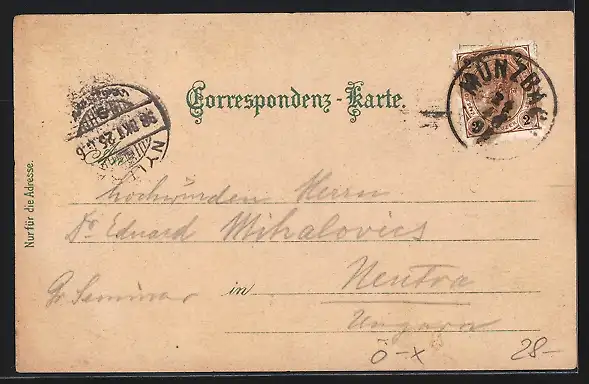 MÜNZBA
2 2
Correspondenz-Karte.
98 OKT 25
Nur für die Adresse.
Hochwürden Herrn
Dr Eduard Mihalovics
in Neutra
Gr Seminar
Ungarn
Ö-X
28-